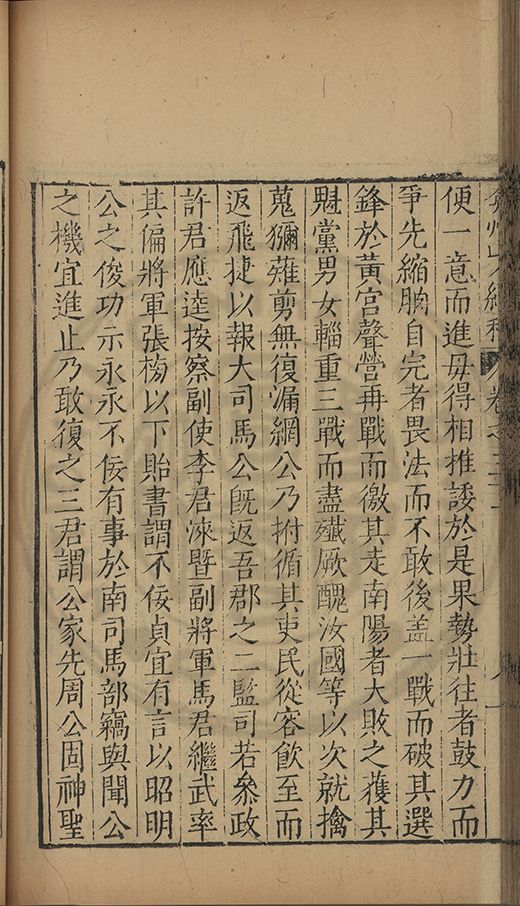 便一意而進毋得相推諉於是果勢壯往者鼓力而
爭先縮朒自完者畏法而不敢後盖一戰而破其選
鋒於黃宫聲營再戰而徼其走南陽者大敗之獲其
魁黨男女輜重三戰而盡殱厥醜汝國等以次就擒
蒐獮薙剪無復漏網公乃拊循其吏民從容飲至而
返飛捷以報大司馬公旣返吾郡之二監司若叅政
許君應逵按察副使李君淶暨副將軍馬君繼武率
其偏將軍張以下貽書謂不佞貞宜有言以昭明
公之俊功示永永不佞有事於南司馬部竊與聞公
之機宜進止乃敢復之三君謂公家先周公固神聖